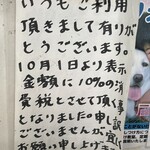 いつもご利用
頂きまして有りが
とうございます。
10月1日より表示
金額に10%の消
費税とさせて頂く事
となりましたので申し訳
ございませんが宜しく
お願い申し上げます